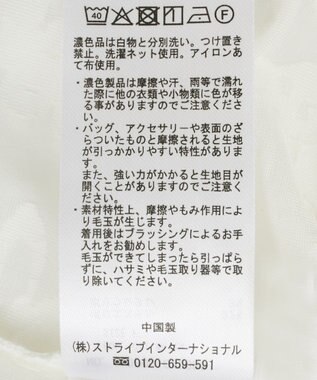 40 F
濃色品は白物と分別洗い。つけ置き
禁止。洗濯ネット使用。アイロンあ
て布使用。
・濃色製品は摩擦や汗、雨等で濡れ
た際に他の衣類や小物類に色が移
る事がありますのでご注意くださ
い。
・バッグ、アクセサリーや表面のざ
らついたものと摩擦されると生地
が引っかかりやすい特性がありま
す。
また、強い力がかかると生地目が
開くことがありますのでご注意
ください。
・素材特性上、摩擦やもみ作用によ
り毛玉が生じます。
着用後はブラッシングによるお手
入れをお勧めします。
毛玉ができてしまったら引っぱら
ずに、ハサミや毛玉取り器等で取
り除いてください。
中国製
(株)ストライプインターナショナル
0120-659-591